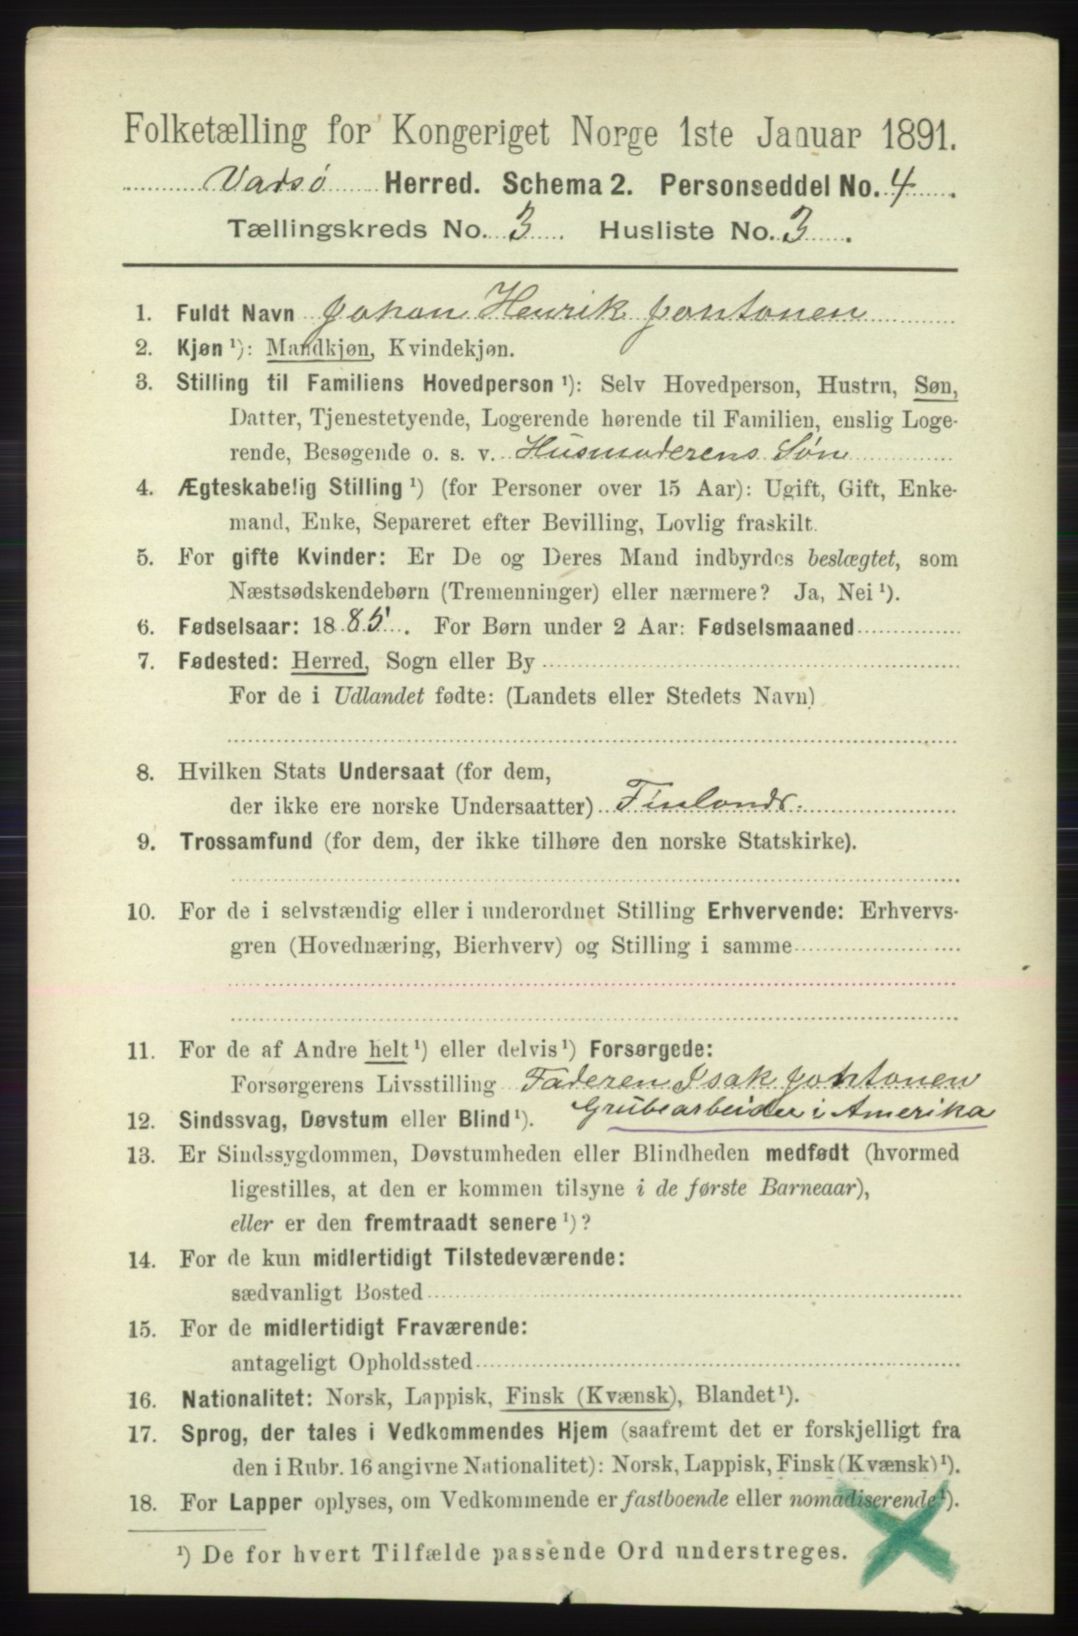 Folketælling for Kongeriget Norge 1ste Januar 1891.
Vadsø Herred. Schema 2. Personseddel No. 4.
Tællingskreds No. 3 Husliste No. 3.
1. Fuldt Navn Johan Henrik Jontonen
2. Kjøn ¹): Mandkjøn, Kvindekjøn.
3. Stilling til Familiens Hovedperson ¹): Selv Hovedperson, Hustru, Søn,
Datter, Tjenestetyende, Logerende hørende til Familien, enslig Loge-
rende, Besøgende o. s. v. Husmoderens Søn
4. Ægteskabelig Stilling ¹) (for Personer over 15 Aar): Ugift, Gift, Enke-
mand, Enke, Separeret efter Bevilling, Lovlig fraskilt.
5. For gifte Kvinder: Er De og Deres Mand indbyrdes beslægtet, som
Næstsødskendebørn (Tremenninger) eller nærmere? Ja, Nei ¹).
6. Fødselsaar: 1885. For Børn under 2 Aar: Fødselsmaaned
7. Fødested: Herred, Sogn eller By
For de i Udlandet fødte: (Landets eller Stedets Navn)
8. Hvilken Stats Undersaat (for dem,
der ikke ere norske Undersaatter) Finlands.
9. Trossamfund (for dem, der ikke tilhøre den norske Statskirke).
10. For de i selvstændig eller i underordnet Stilling Erhvervende: Erhvervs-
gren (Hovednæring, Bierhverv) og Stilling i samme
11. For de af Andre helt ¹) eller delvis ¹) Forsørgede:
Forsørgerens Livsstilling Faderen Isak Jontonen
Grubearbeider i Amerika
12. Sindssvag, Døvstum eller Blind ¹).
13. Er Sindssygdommen, Døvstumheden eller Blindheden medfødt (hvormed
ligestilles, at den er kommen tilsyne i de første Barneaar),
eller er den fremtraadt senere ¹)?
14. For de kun midlertidigt Tilstedeværende:
sædvanligt Bosted
15. For de midlertidigt Fraværende:
antageligt Opholdssted
16. Nationalitet: Norsk, Lappisk, Finsk (Kvænsk), Blandet ¹).
17. Sprog, der tales i Vedkommendes Hjem (saafremt det er forskjelligt fra
den i Rubr. 16 angivne Nationalitet): Norsk, Lappisk, Finsk (Kvænsk) ¹).
18. For Lapper oplyses, om Vedkommende er fastboende eller nomadiserende ¹).
¹) De for hvert Tilfælde passende Ord understreges.